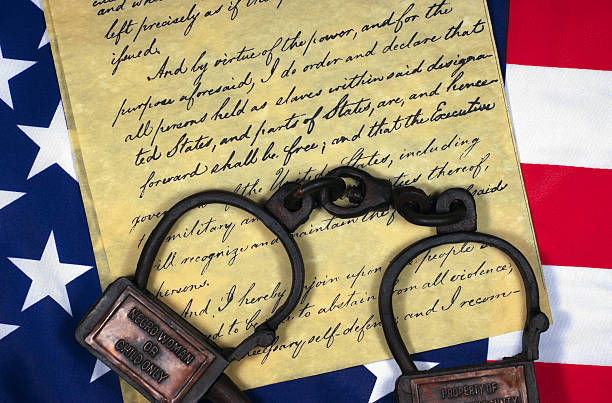 left precisely as if th
issued.
And by virtue of the power, and for the
purpose aforesaid, I do order and declare that
all persons held as slaves within said designa-
ted States, and parts of States, are, and hence-
forward shall be free; and that the Executive
of the United States, including
military an thereof,
ill recognize and maintain the
persons.
And I hereby join upon people
to abstain from all violence;
necessary self-defence; and I recom-
NEGRO WOMAN
OR
CHILD ONLY
PROPERTY OF